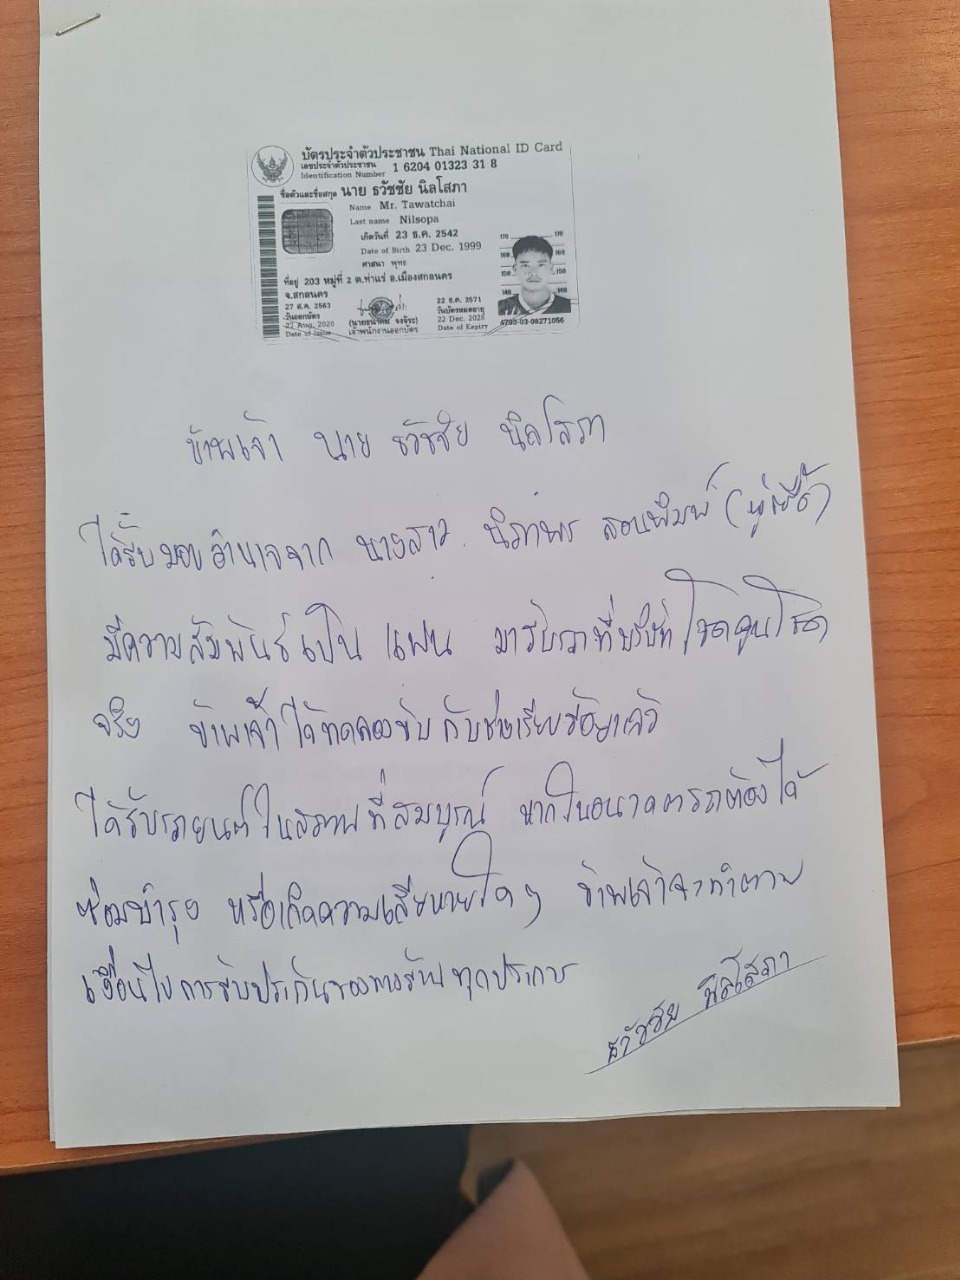 บัตรประจำตัวประชาชน Thai National ID Card
เลขประจำตัวประชาชน
Identification Number 1 6204 01323 31 8
ชื่อตัวและชื่อสกุล นาย ธวัชชัย นิลโสภา
Name Mr. Tawatchai
Last name Nilsopa
เกิดวันที่ 23 ธ.ค. 2542
Date of Birth 23 Dec. 1999
ศาสนา พุทธ
ที่อยู่ 203 หมู่ที่ 2 ต.ท่าแร่ อ.เมืองสกลนคร
จ.สกลนคร
27 ส.ค. 2563
วันออกบัตร
27 Aug. 2020
Date of Issue
เจ้าพนักงานออกบัตร
22 ธ.ค. 2571
วันบัตรหมดอายุ
22 Dec. 2028
Date of Expiry
4703-03-08271056
ข้าพเจ้า นาย ธวัชชัย นิลโสภา
ได้รับมอบอำนาจจาก นางสาว นิภาพร สอนพิมพ์ (ผู้เช่าซื้อ)
มีความสัมพันธ์เป็น แฟน มารับรถที่บริษัท โชคคูนโชค
จริง ข้าพเจ้าได้ทดลองขับกับช่างเรียบร้อยแล้ว
ได้รับรถยนต์ในสภาพที่สมบูรณ์ หากในอนาคตรถต้องได้
ซ่อมบำรุง หรือเกิดความเสียหายใด ๆ ข้าพเจ้าจะทำตาม
เงื่อนไขการรับประกันของทางร้านทุกประการ
ธวัชชัย นิลโสภา